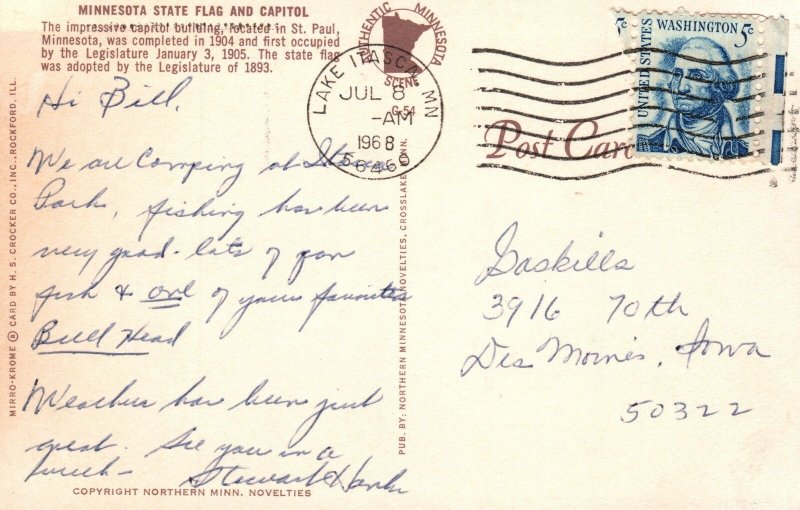 MINNESOTA STATE FLAG AND CAPITOL
The impressive capitol building, located in St. Paul,
Minnesota, was completed in 1904 and first occupied
by the Legislature January 3, 1905. The state flag
was adopted by the Legislature of 1893.
AUTHENTIC MINNESOTA
SCENE
G-54
LAKE ITASCA, MN
JUL 8
-AM
1968
56460
5c WASHINGTON 5c
UNITED STATES
Post Card
Hi Bill,
We are Camping at
Park, fishing has been
very good - lots of pan
fish & one of your favorites
Bull Head
Weather has been just
great. See you in a
week -
Stewart &
Gaskills
3916 70th
Des Moines, Iowa
50322
MIRRO-KROME ® CARD BY H. S. CROCKER CO., INC., ROCKFORD, ILL.
PUB. BY: NORTHERN MINNESOTA NOVELTIES, CROSSLAKE, MINN.
COPYRIGHT NORTHERN MINN. NOVELTIES